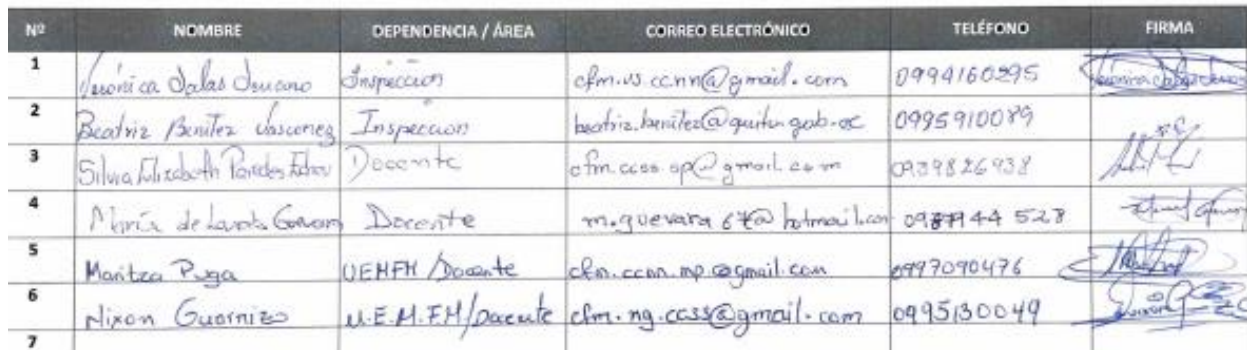 Nº NOMBRE DEPENDENCIA / ÁREA CORREO ELECTRÓNICO TELÉFONO FIRMA
1 Verónica Salas Inspeccion cfm.vs.ccnn@gmail.com 0994160295
2 Beatriz Benítez Vasconez Inspeccion beatriz.benitez@quito.gob.ec 0995910089
3 Silvia Elizabeth Paredes Docente cfm.ccss.sp@gmail.com 0939826938
4 María de Lourdes Docente m.guevara 67@hotmail.com 528
5 Maritza Puga UEMFM / Docente cfm.ccnn.mp.@gmail.com 0997090476
6 Nixon Guarnizo U.E.M.F.M/Docente cfm.ng.ccss@gmail.com 0995130049
7